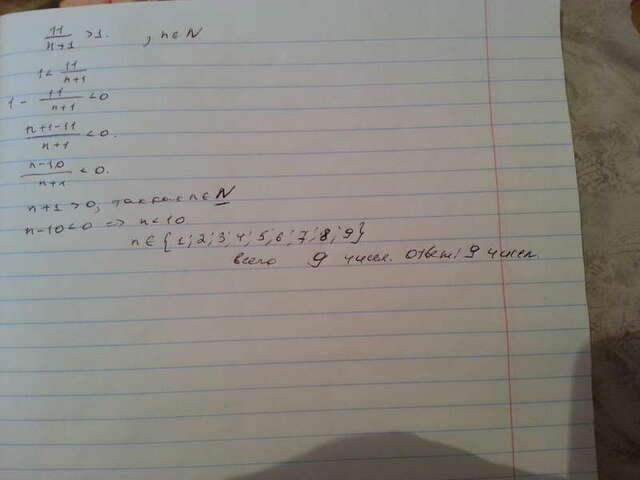 11/n+1 >1. , n∈N
1< 11/n+1
1 - 11/n+1 <0
n+1-11/n+1 <0.
n-10/n+1 <0.
n+1 >0, так как n∈N
n-10<0 => n<10
n∈{1;2;3;4;5;6;7;8;9}
всего 9 чисел. ответ: 9 чисел.